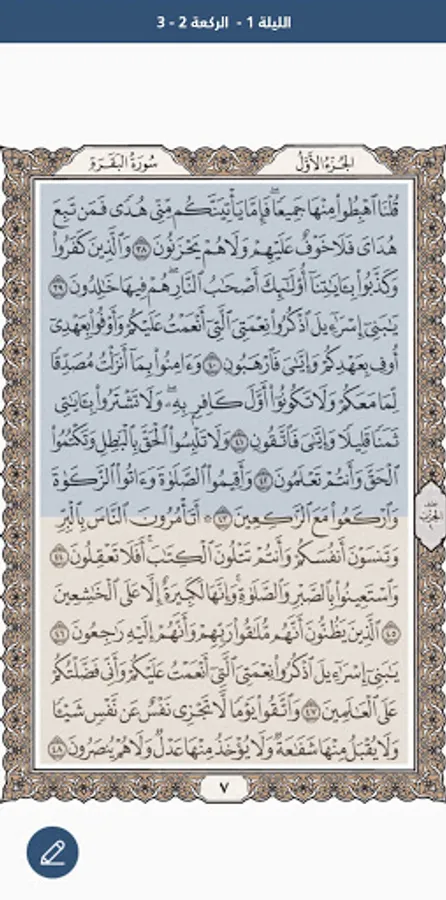 الليلة 1 - الركعة 2 - 3
الجُزْءُ الأَوَّلُ
سُورَةُ البَقَرَةِ
قُلْنَا ٱهْبِطُواْ مِنْهَا جَمِيعٗاۖ فَإِمَّا يَأۡتِيَنَّكُم مِّنِّي هُدٗى فَمَن تَبِعَ
هُدَايَ فَلَا خَوۡفٌ عَلَيۡهِمۡ وَلَا هُمۡ يَحۡزَنُونَ ٣٨ وَٱلَّذِينَ كَفَرُواْ
وَكَذَّبُواْ بِـَٔايَٰتِنَآ أُوْلَٰٓئِكَ أَصۡحَٰبُ ٱلنَّارِۖ هُمۡ فِيهَا خَٰلِدُونَ ٣٩
يَٰبَنِيٓ إِسۡرَٰٓءِيلَ ٱذۡكُرُواْ نِعۡمَتِيَ ٱلَّتِيٓ أَنۡعَمۡتُ عَلَيۡكُمۡ وَأَوۡفُواْ بِعَهۡدِيٓ
أُوفِ بِعَهۡدِكُمۡ وَإِيَّٰيَ فَٱرۡهَبُونِ ٤٠ وَءَامِنُواْ بِمَآ أَنزَلۡتُ مُصَدِّقٗا
لِّمَا مَعَكُمۡ وَلَا تَكُونُوٓاْ أَوَّلَ كَافِرِۭ بِهِۦۖ وَلَا تَشۡتَرُواْ بِـَٔايَٰتِي
ثَمَنٗا قَلِيلٗا وَإِيَّٰيَ فَٱتَّقُونِ ٤١ وَلَا تَلۡبِسُواْ ٱلۡحَقَّ بِٱلۡبَٰطِلِ وَتَكۡتُمُواْ
ٱلۡحَقَّ وَأَنتُمۡ تَعۡلَمُونَ ٤٢ وَأَقِيمُواْ ٱلصَّلَوٰةَ وَءَاتُواْ ٱلزَّكَوٰةَ
وَٱرۡكَعُواْ مَعَ ٱلرَّٰكِعِينَ ٤٣ ۞ أَتَأۡمُرُونَ ٱلنَّاسَ بِٱلۡبِرِّ
وَتَنسَوۡنَ أَنفُسَكُمۡ وَأَنتُمۡ تَتۡلُونَ ٱلۡكِتَٰبَۚ أَفَلَا تَعۡقِلُونَ ٤٤
وَٱسۡتَعِينُواْ بِٱلصَّبۡرِ وَٱلصَّلَوٰةِۚ وَإِنَّهَا لَكَبِيرَةٌ إِلَّا عَلَى ٱلۡخَٰشِعِينَ
٤٥ ٱلَّذِينَ يَظُنُّونَ أَنَّهُم مُّلَٰقُواْ رَبِّهِمۡ وَأَنَّهُمۡ إِلَيۡهِ رَٰجِعُونَ ٤٦
يَٰبَنِيٓ إِسۡرَٰٓءِيلَ ٱذۡكُرُواْ نِعۡمَتِيَ ٱلَّتِيٓ أَنۡعَمۡتُ عَلَيۡكُمۡ وَأَنِّي فَضَّلۡتُكُمۡ
عَلَى ٱلۡعَٰلَمِينَ ٤٧ وَٱتَّقُواْ يَوۡمٗا لَّا تَجۡزِي نَفۡسٌ عَن نَّفۡسٖ شَيۡـٔٗا
وَلَا يُقۡبَلُ مِنۡهَا شَفَٰعَةٞ وَلَا يُؤۡخَذُ مِنۡهَا عَدۡلٞ وَلَا هُمۡ يُنصَرُونَ ٤٨
٧